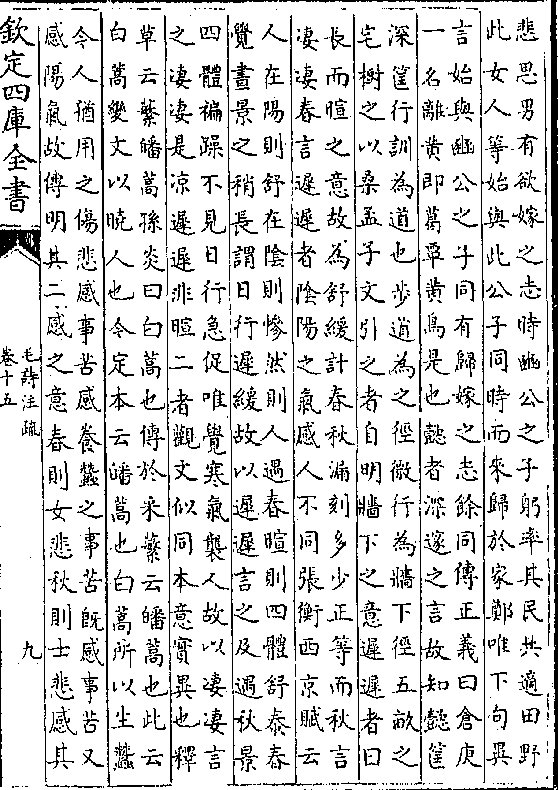 悲思男有欲嫁之志時豳公之子躬率其民共適田野
此女人等始與此公子同時而來歸於家鄭唯下句異
言始與豳公之子同有歸嫁之志餘同傳正義曰倉庚
一名離黄即葛覃黄鳥是也懿者深邃之言故知懿筐
深筐行訓為道也步道為之徑微行為牆下徑五畝之
宅樹之以桑孟子文引之者自明牆下之意遲遲者日
長而暄之意故為舒緩計春秋漏刻多少正等而秋言
凄凄春言遲遲者陰陽之氣感人不同張衡西京賦云
人在陽則舒在陰則慘然則人遇春暄則四體舒泰春
覺晝景之稍長謂日行遲緩故以遲遲言之及遇秋景
四體褊躁不見日行急促唯覺寒氣襲人故以凄凄言
之凄凄是凉遲遲非暄二者觀文似同本意實異也釋
草云蘩皤蒿孫炎曰白蒿也傳於采蘩云皤蒿也此云
白蒿變文以曉人也今定本云皤蒿也白蒿所以生蠶
今人猶用之傷悲感事苦感養蠶之事苦既感事苦又
感陽氣故傳明其二感之意春則女悲秋則士悲感其
欽定四庫全書
毛詩注疏
卷十五
九